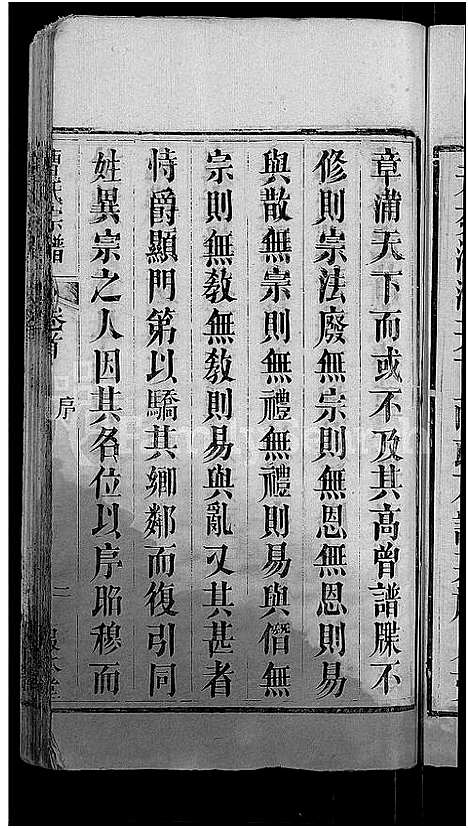 章滿天下而或不及其高曾譜牒不
修則宗法廢無宗則無恩無恩則易
與散無宗則無禮無禮則易與僭無
宗則無教無教則易與亂又其甚者
恃爵顯門第以驕其鄉鄰而復引同
姓異宗之人因其各位以序昭穆而
曹氏宗譜
卷首
序